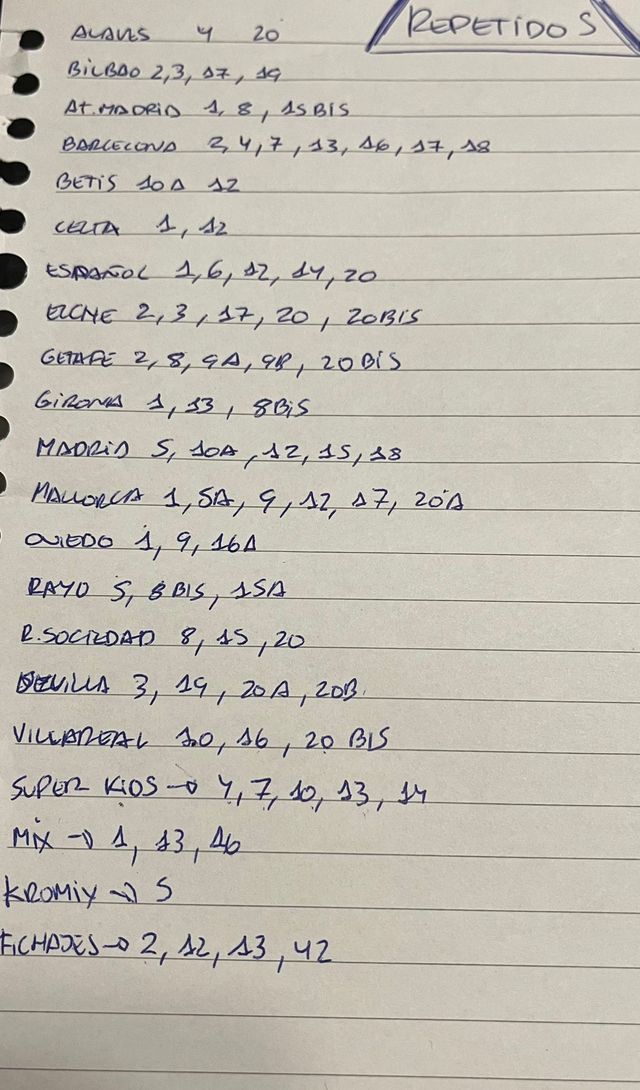 REPETIDOS
ALAVES 4 20
BILBAO 2,3, 17, 19
AT. MADRID 1, 8, 15BIS
BARCELONA 2, 4, 7, 13, 16, 17, 18
BETIS 10A 12
CELTA 1, 12
ESPAÑOL 1, 6, 12, 14, 20
ELCHE 2, 3, 17, 20, 20BIS
GETAFE 2, 8, 9A, 9B, 20BIS
GIRONA 1, 13, 8BIS
MADRID 5, 10A, 12, 15, 18
MALLORCA 1, 5A, 9, 12, 17, 20A
OVIEDO 1, 9, 16A
RAYO 5, 8BIS, 15A
R. SOCIEDAD 8, 15, 20
SEVILLA 3, 19, 20A, 20B.
VILLAREAL 10, 16, 20 BIS
SUPER KIDS → 4, 7, 10, 13, 14
MIX → 1, 13, 16
KROMIX → 5
FICHAJES → 2, 12, 13, 42